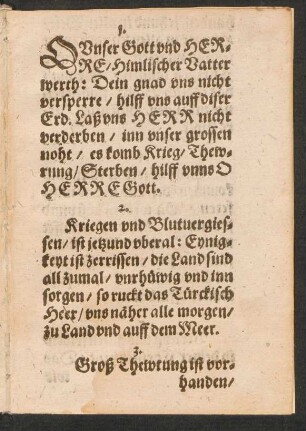 1.
O Vnser Gott vnd HER-
RE/ Himlischer Vatter
werth: Dein gnad vns nicht
versperre / hilff vns auff diser
Erd. Laß vns HERR nicht
verderben / inn vnser grossen
noht / es komb Krieg/ Thew-
rung/ Sterben / hilff vnns O
HERRE Gott.
2.
Kriegen vnd Blutuergies-
sen / ist jetzund vberal: Eynig-
keyt ist zerrissen / die Land sind
all zumal / vnrhüwig vnd inn
sorgen / so ruckt das Türckisch
Heer / vns näher alle morgen /
zu Land vnd auff dem Meer.
3.
Groß Thewrung ist vor-
handen /